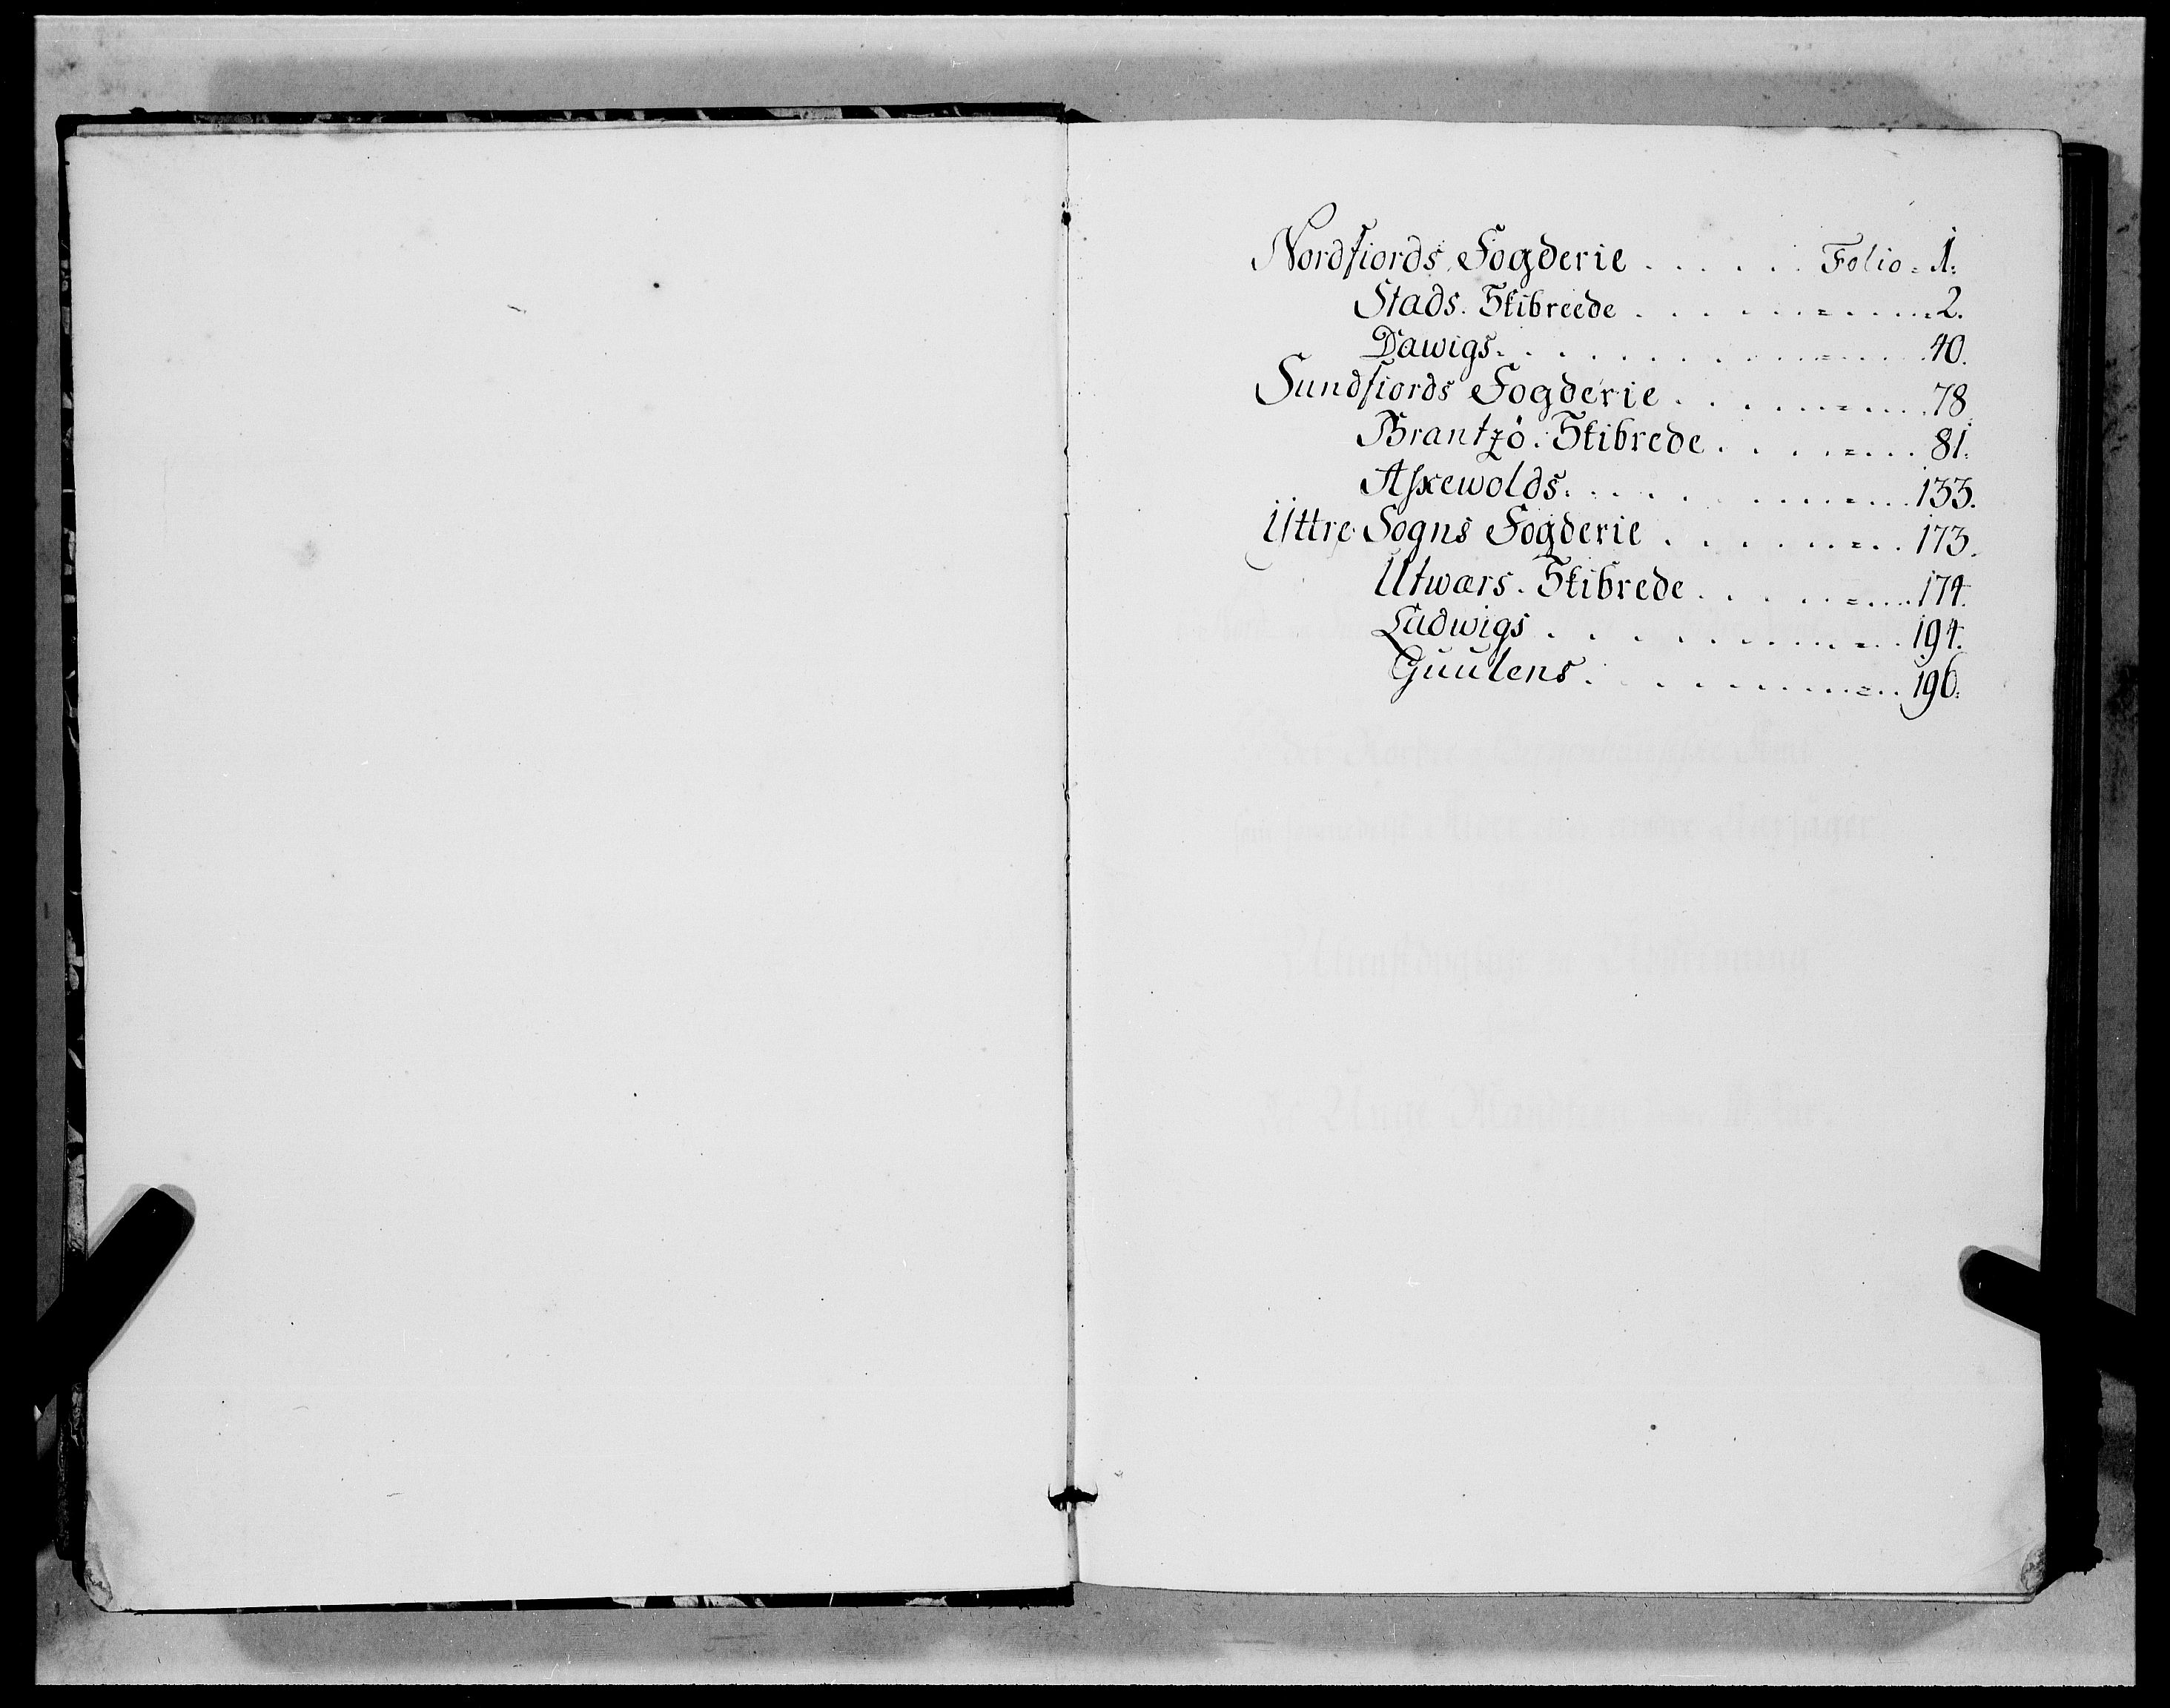 Nordfiords Fogderie . . . . . Folio = 1.
Stads. Skibreede . . . . . . = . . . . . 2.
Dawigs. . . . . . . . . . . . = . . . . 40.
Sundfiords Fogderie . . . . . . = . . . . 78.
Brantzö. Skibrede . . . . . = . . . 81.
Askewolds. . . . . . . . . . = . . . 133.
Ÿttre Sogns Fogderie . . . . . . . = . . 173.
Utwærs. Skibrede . . . . . . = . . . 174.
Ladwigs . . . . . . . . . . . = . . 194.
Guulens . . . . . . . . . . = . . 196.